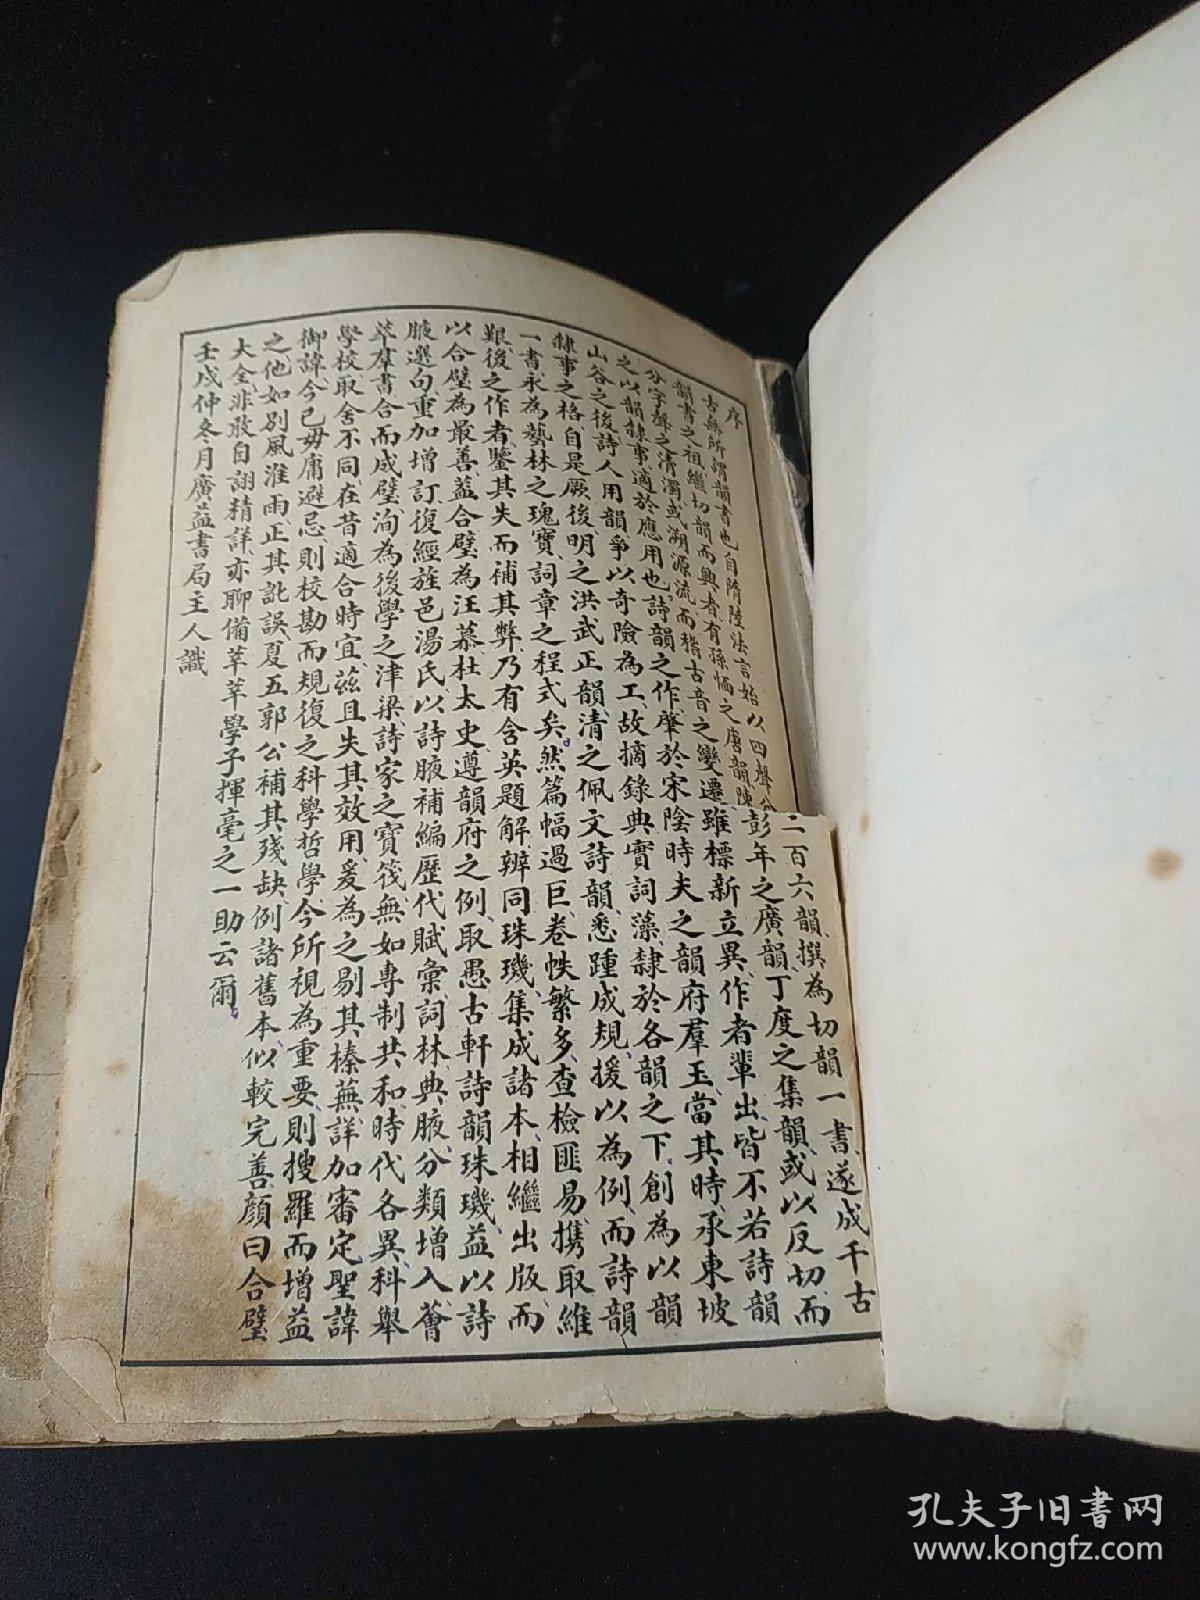 序
古無所謂韻書也自隋陸法言始以四聲分二百六韻、撰為切韻一書、遂成千古
韻書之祖、繼切韻而興者、有孫愐之唐韻、陳彭年之廣韻、丁度之集韻、或以反切、而
分字聲之清濁、或溯源流、而稽古音之變遷、雖標新立異、作者輩出、皆不若詩韻
之以韻隸事、適於應用也、詩韻之作、肇於宋陰時夫之韻府羣玉、當其時、承東坡
山谷之後、詩人用韻、爭以奇險為工、故摘錄典實詞藻、隸於各韻之下、創為以韻
隸事之格、自是厥後、明之洪武正韻、清之佩文詩韻、悉踵成規、援以為例、而詩韻
一書、永為藝林之瑰寶、詞章之程式矣。然篇幅過巨、卷帙繁多、查檢匪易、携取維
艱、後之作者、鑒其失而補其弊、乃有含英題解辨同珠璣集成諸本、相繼出版、而
以合璧為最善、蓋合璧為汪慕杜太史遵韻府之例、取愚古軒詩韻珠璣、益以詩
腋選句、重加增訂、復經旌邑湯氏、以詩腋補編歷代賦彙詞林典腋、分類增入、薈
萃羣書、合而成璧、洵為後學之津梁、詩家之寶筏、無如專制共和、時代各異、科舉
學校、取舍不同、在昔適合時宜、茲且失其效用、爰為之剔其榛蕪、詳加審定、聖諱
御諱、今已毋庸避忌、則校勘而規復之、科學哲學、今所視為重要、則搜羅而增益
之、他如別風淮雨、正其訛誤、夏五郭公、補其殘缺、例諸舊本、似較完善、顏曰合璧
大全、非敢自詡精詳、亦聊備莘莘學子揮毫之一助云爾。
壬戌仲冬月廣益書局主人識
孔夫子旧書网
www.kongfz.com